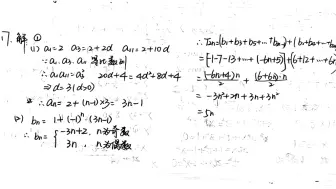 17. 解 ①
(1) a₁=2 a₃=2+2d a₁₁=2+10d
∵a₁. a₃. a₁₁ 等比数列
∴a₁a₁₁=a₃² 20d+4=4d²+8d+4
⇒d=3(d>0)
∴an=2+(n-1)×3=3n-1
(2) bn=1+(-1)ⁿ(3n-1)
∴bn={-3n+2, n为奇数
3n, n为偶数
∴T₂n=(b₁+b₃+b₅+…+b₂n₋₁)+(b₂+b₄+…+b₂n
=[-1-7-13+…+(-6n+5)]+(6+12+…+6n
=(-6n+4)n/2+(6+6n)·n/2
=-3n²+2n+3n+3n²
=5n